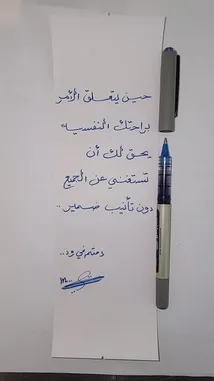 حين يتعلق الأمر
براحتك النفسية
يحق لك أن
تستغني عن الجميع
دون تأنيب ضمير..
دمتم في ود..